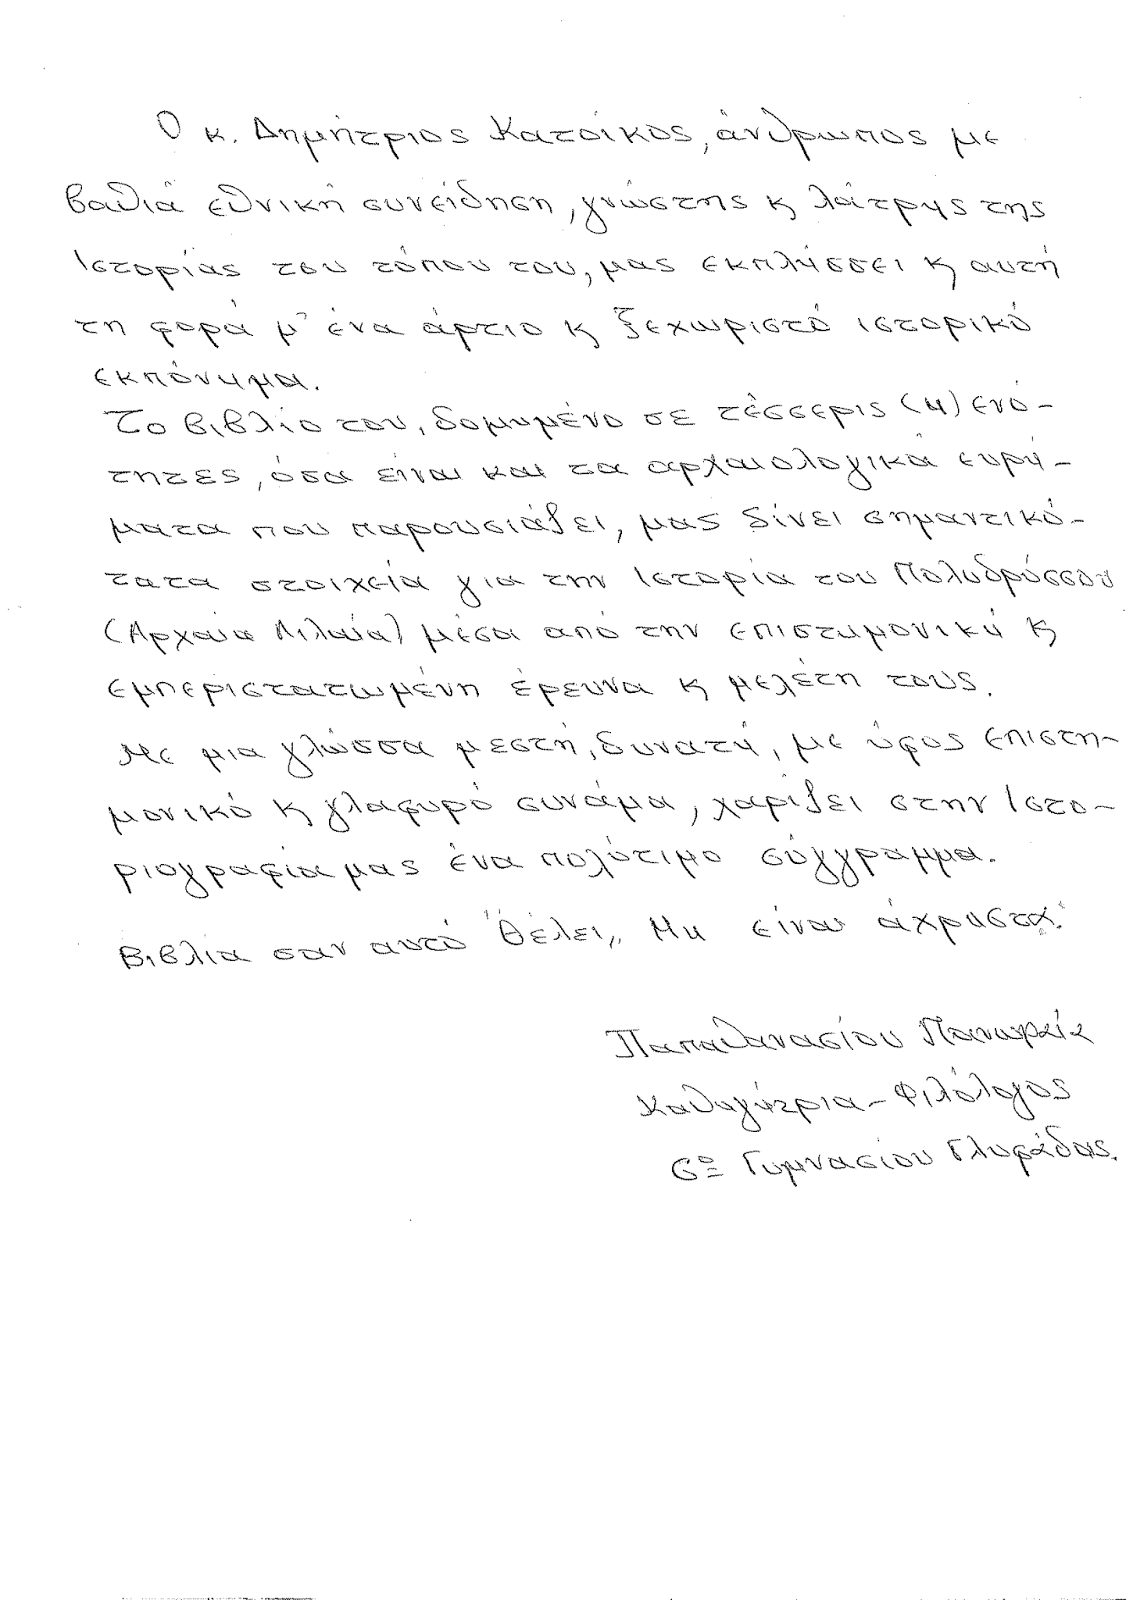 Ο κ. Δημήτριος Κατοίκος, άνθρωπος με
βαθιά εθνική συνείδηση, γνώστης κ λάτρης της
Ιστορίας του τόπου του, μας εκπλήσσει κ αυτή
τη φορά μ' ένα άρτιο κ ξεχωριστό ιστορικό
εκπόνημα.
Το βιβλίο του, δομημένο σε τέσσερις (4) ενό-
τητες, όσα είναι και τα αρχαιολογικά ευρή-
ματα που παρουσιάζει, μας δίνει σημαντικό-
τατα στοιχεία για την Ιστορία του Πολυδρόσσου
(Αρχαία Λιλαία) μέσα από την επιστημονική κ
εμπεριστατωμένη έρευνα κ μελέτη τους.
Με μια γλώσσα μεστή, δυνατή, με ύφος επιστη-
μονικό κ γλαφυρό συνάμα, χαρίζει στην Ιστο-
ριογραφία μας ένα πολύτιμο σύγγραμμα.
Βιβλία σαν αυτό "θέλει,, Μη είναι άχρηστα.
Παπαθανασίου
Καθηγήτρια - Φιλόλογος
Γυμνασίου Γλυφάδας.